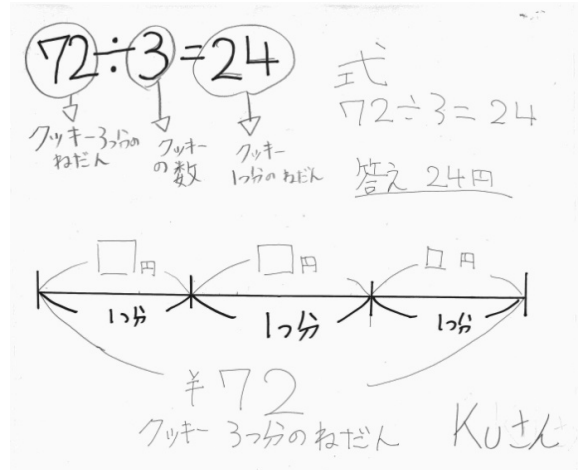 72÷3=24
クッキー3つ分の
ねだん
クッキー
の数
クッキー
1つ分のねだん
式
72÷3=24
答え 24円
□円
□円
□円
1つ分
1つ分
1つ分
¥72
クッキー 3つ分のねだん
Kuさん